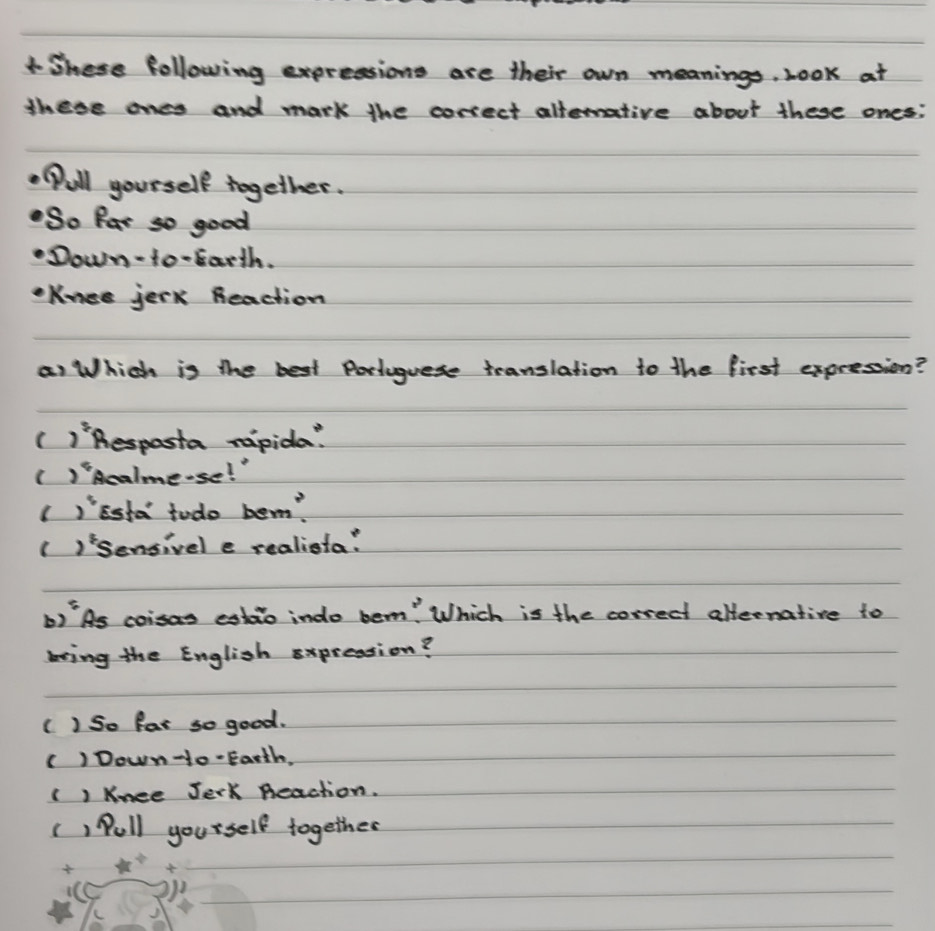 + These following expressions are their own meanings. Look at
these ones and mark the correct alternative about these ones:
• Pull yourself together.
• So far so good
• Down-to-Earth.
• Knee jerk Reaction
a) Which is the best Portuguese translation to the first expression?
( ) "Resposta rápida".
( ) "Acalme-se!"
( ) "Está tudo bem".
( ) "Sensível e realista".
b) "As coisas estão indo bem". Which is the correct alternative to
bring the English expression?
( ) So far so good.
( ) Down-to-Earth.
( ) Knee Jerk Reaction.
( ) Pull yourself together